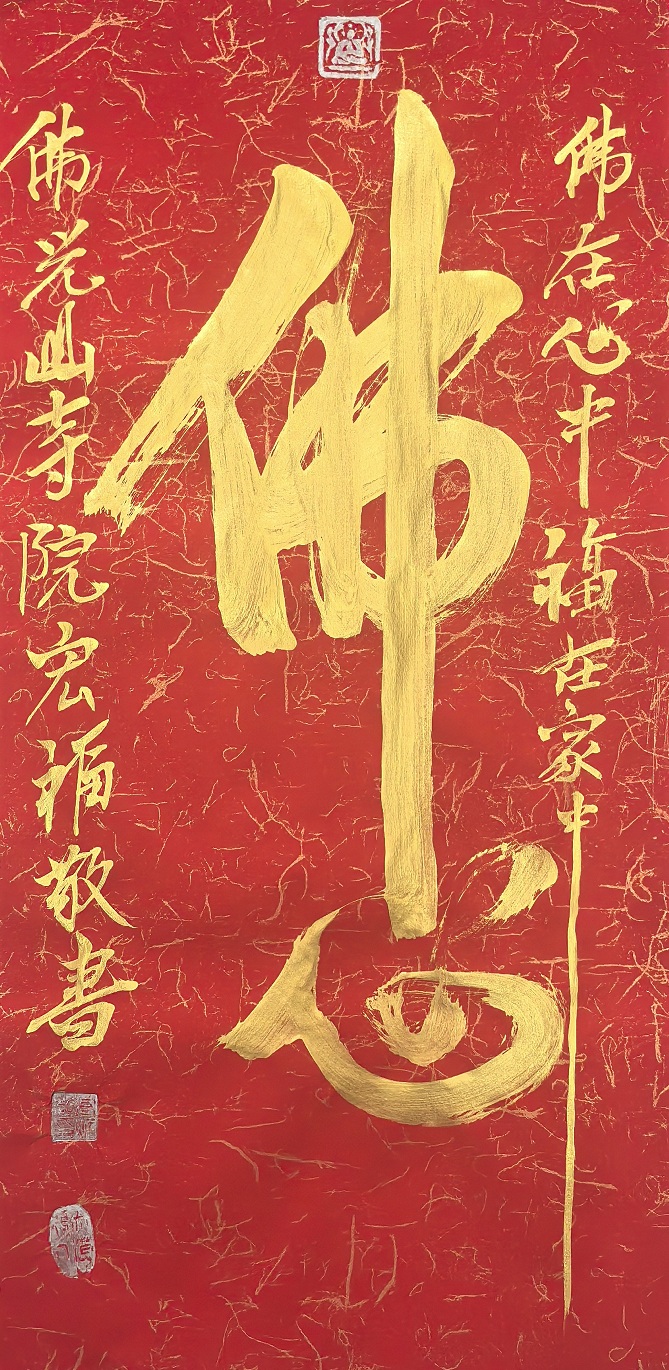 佛在心中福在家中
佛心
佛光山寺院宏福敬书